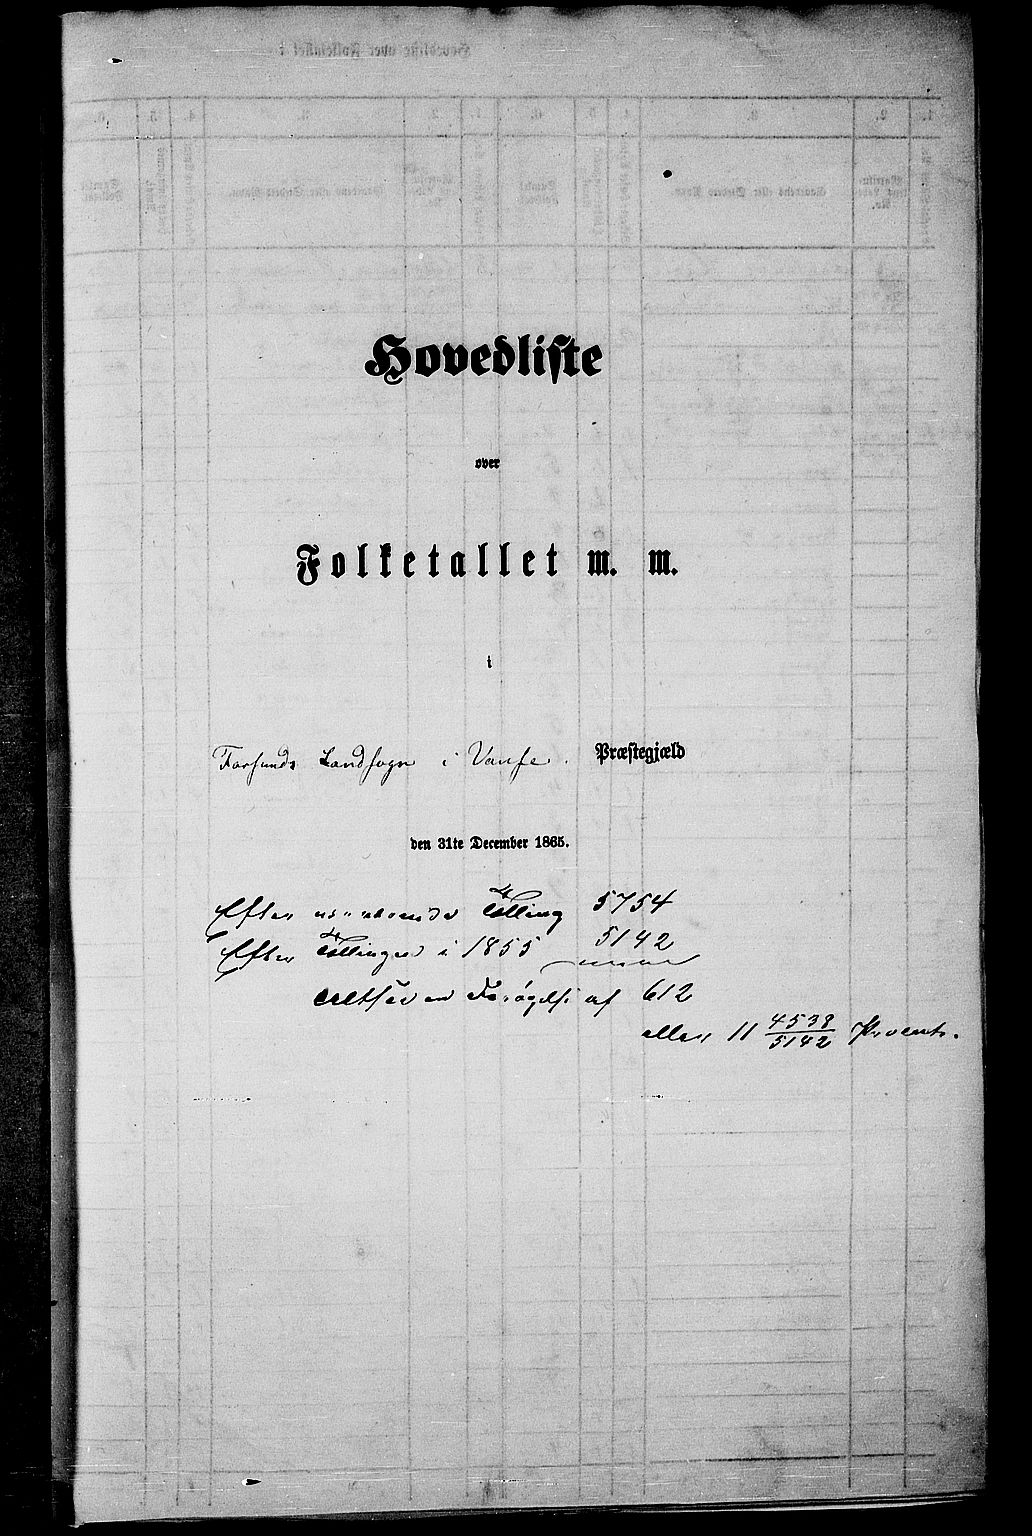 Hovedliste
over
Folketallet m. m.
i
Farsunds Landsogn i Vanse. Præstegjæld
den 31te December 1865.
Efter nærværende Tælling 5754
Efter Tællingen i 1855 5142
altsaa en Forøgelse af 612
eller 11 4538/5142 Procent.